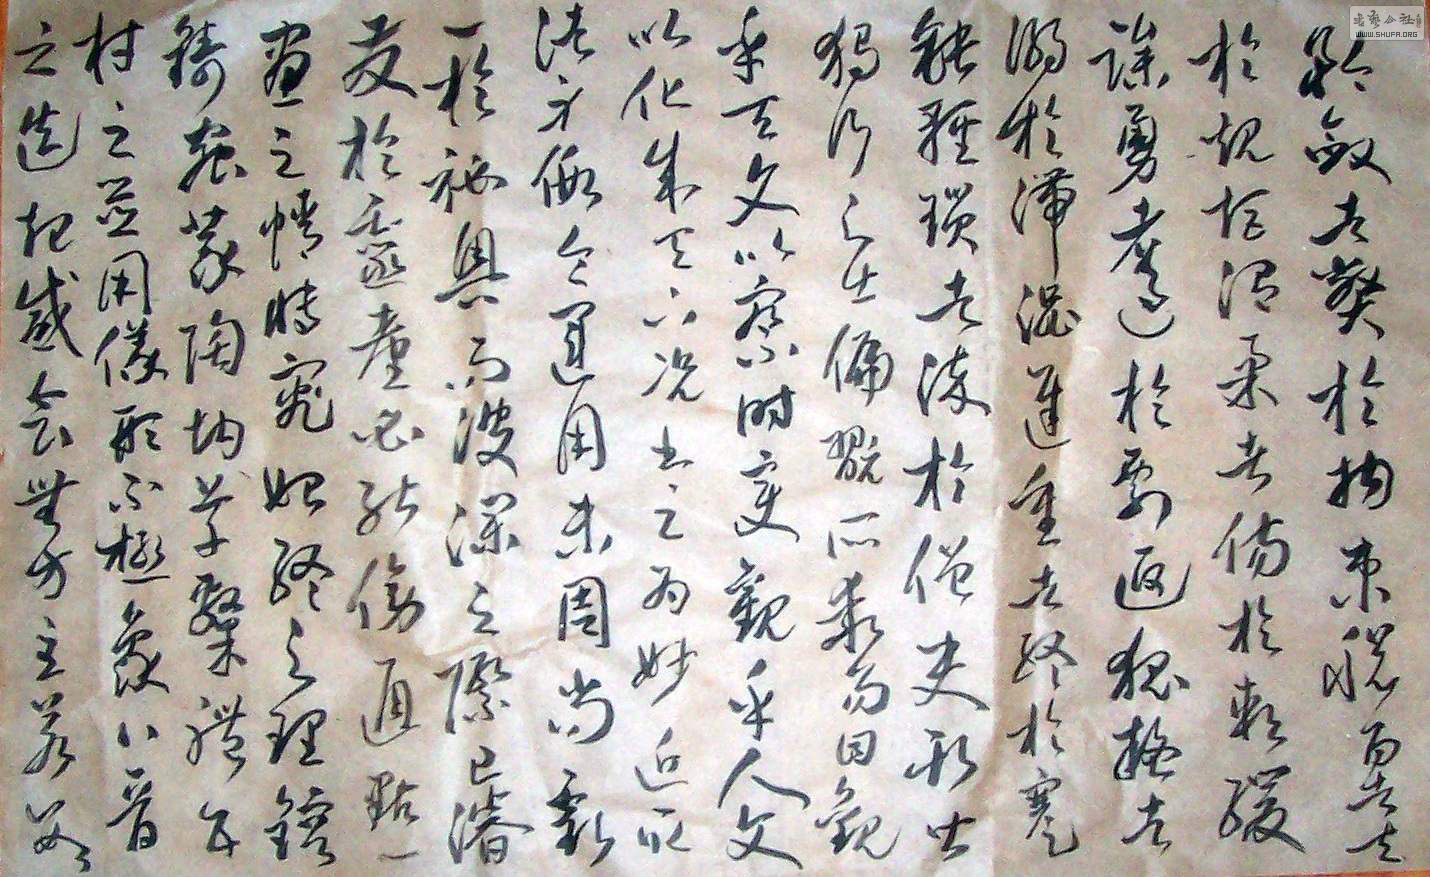 矜斂者弊於拘束脫易者失
於規矩溫柔者傷於軟緩
躁勇者過於剽迫狐疑者
溺於滯澀遲重者終於蹇
鈍輕瑣者淬於俗吏斯皆
獨行之士偏翫所乖易曰觀
乎天文以察時變觀乎人文
以化成天下況書之為妙近取
諸身假令運用未周尚虧
工於秘奧而波瀾之際已濬
發於靈臺必能傍通點
畫之情博究始終之理鎔
鑄蟲篆陶均草隸體五
材之並用儀形不極象八音
之迭起感會無方至若數
WWW.SHUFA.ORG